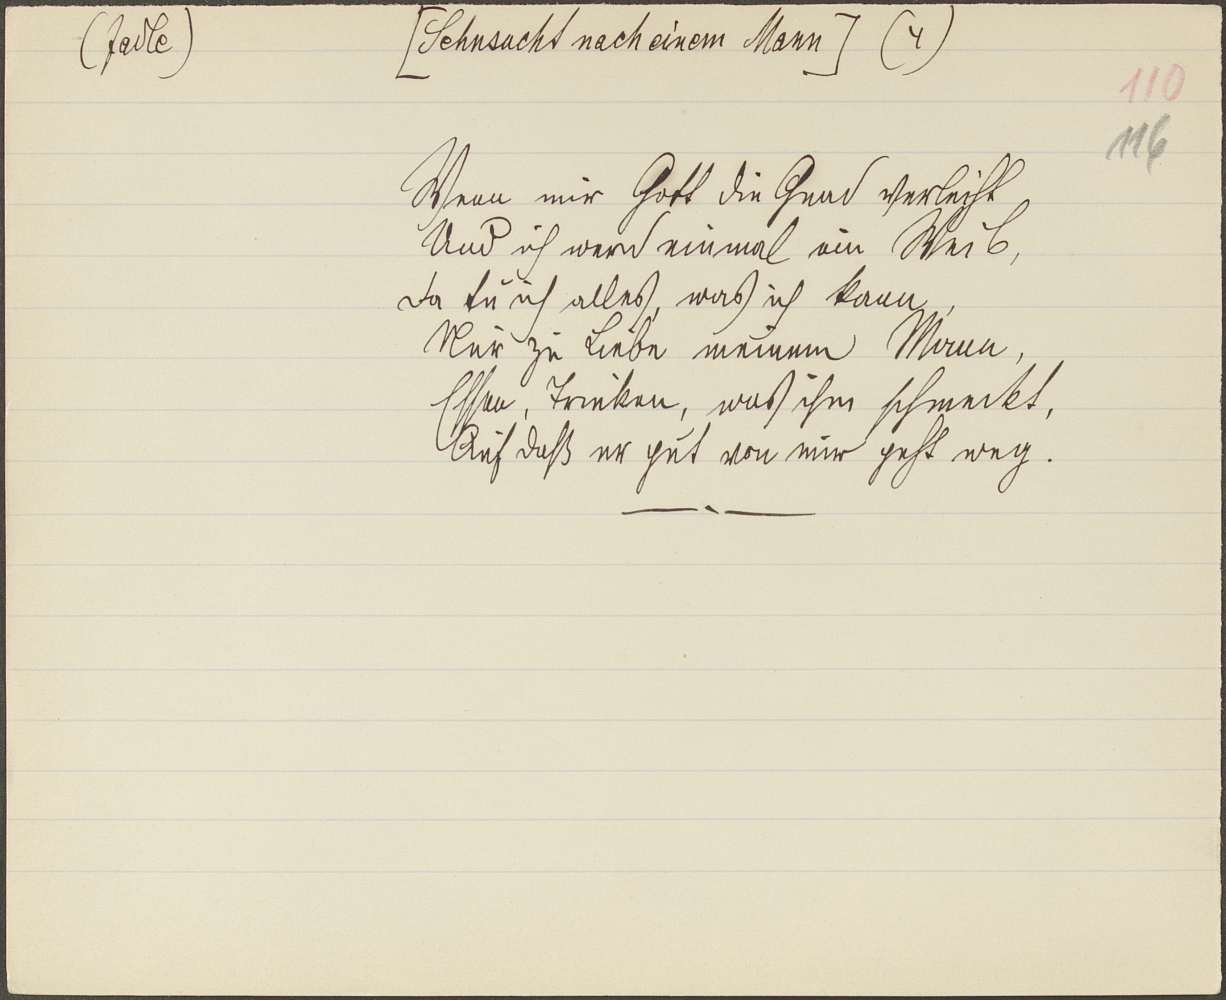 (Jadle) [Sehnsucht nach einem Mann] (4)
110
116
Wenn mir Gott die Gnad verleiht
Und ich werd einmal ein Weib,
Da tu ich alles, was ich kann,
Nur zu Liebe meinem Mann,
Essen, Trinken, was ihm schmeckt,
Auf daß er gut von mir geht weg.